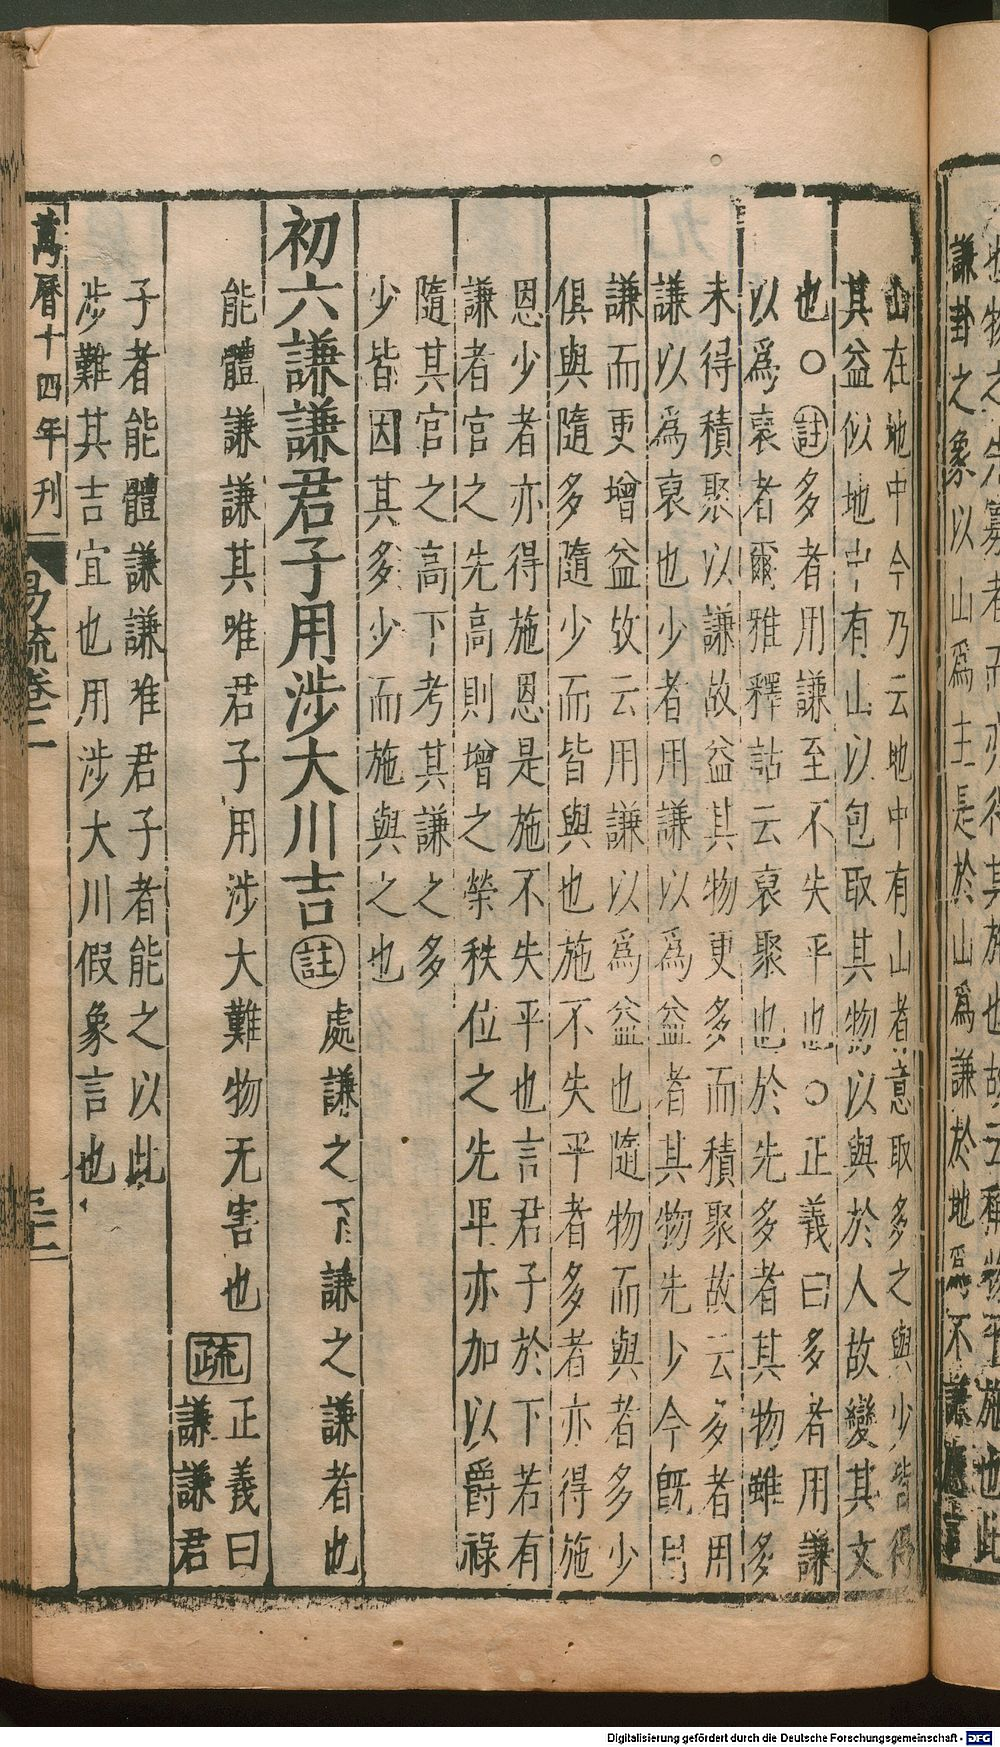 山在地中今乃云地中有山者意取多之與少皆得
其益似地中有山以包取其物以與於人故變其文
也○註多者用謙至不失平也○正義曰多者用謙
以爲裒者爾雅釋詁云裒聚也於先多者其物雖多
未得積聚以謙故益其物更多而積聚故云多者用
謙以爲裒也少者用謙以爲益者其物先少今旣用
謙而更增益故云用謙以爲益也隨物而與者多少
俱與隨多隨少而皆與也施不失平者多者亦得施
恩少者亦得施恩是施不失平也言君子於下若有
謙者官之先高則增之榮秩位之先卑亦加以爵祿
隨其官之高下考其謙之多
少皆因其多少而施與之也
初六謙謙君子用涉大川吉註處謙之下謙之謙者也
能體謙謙其唯君子用涉大難物无害也疏正義曰
謙謙君
子者能體謙謙唯君子者能之以此
涉難其吉宜也用涉大川假象言也
萬曆十四年刊
易疏卷二
謙卦之象以山爲主是於山爲謙於地爲不謙應言
Digitalisierung gefördert durch die Deutsche Forschungsgemeinschaft - DFG